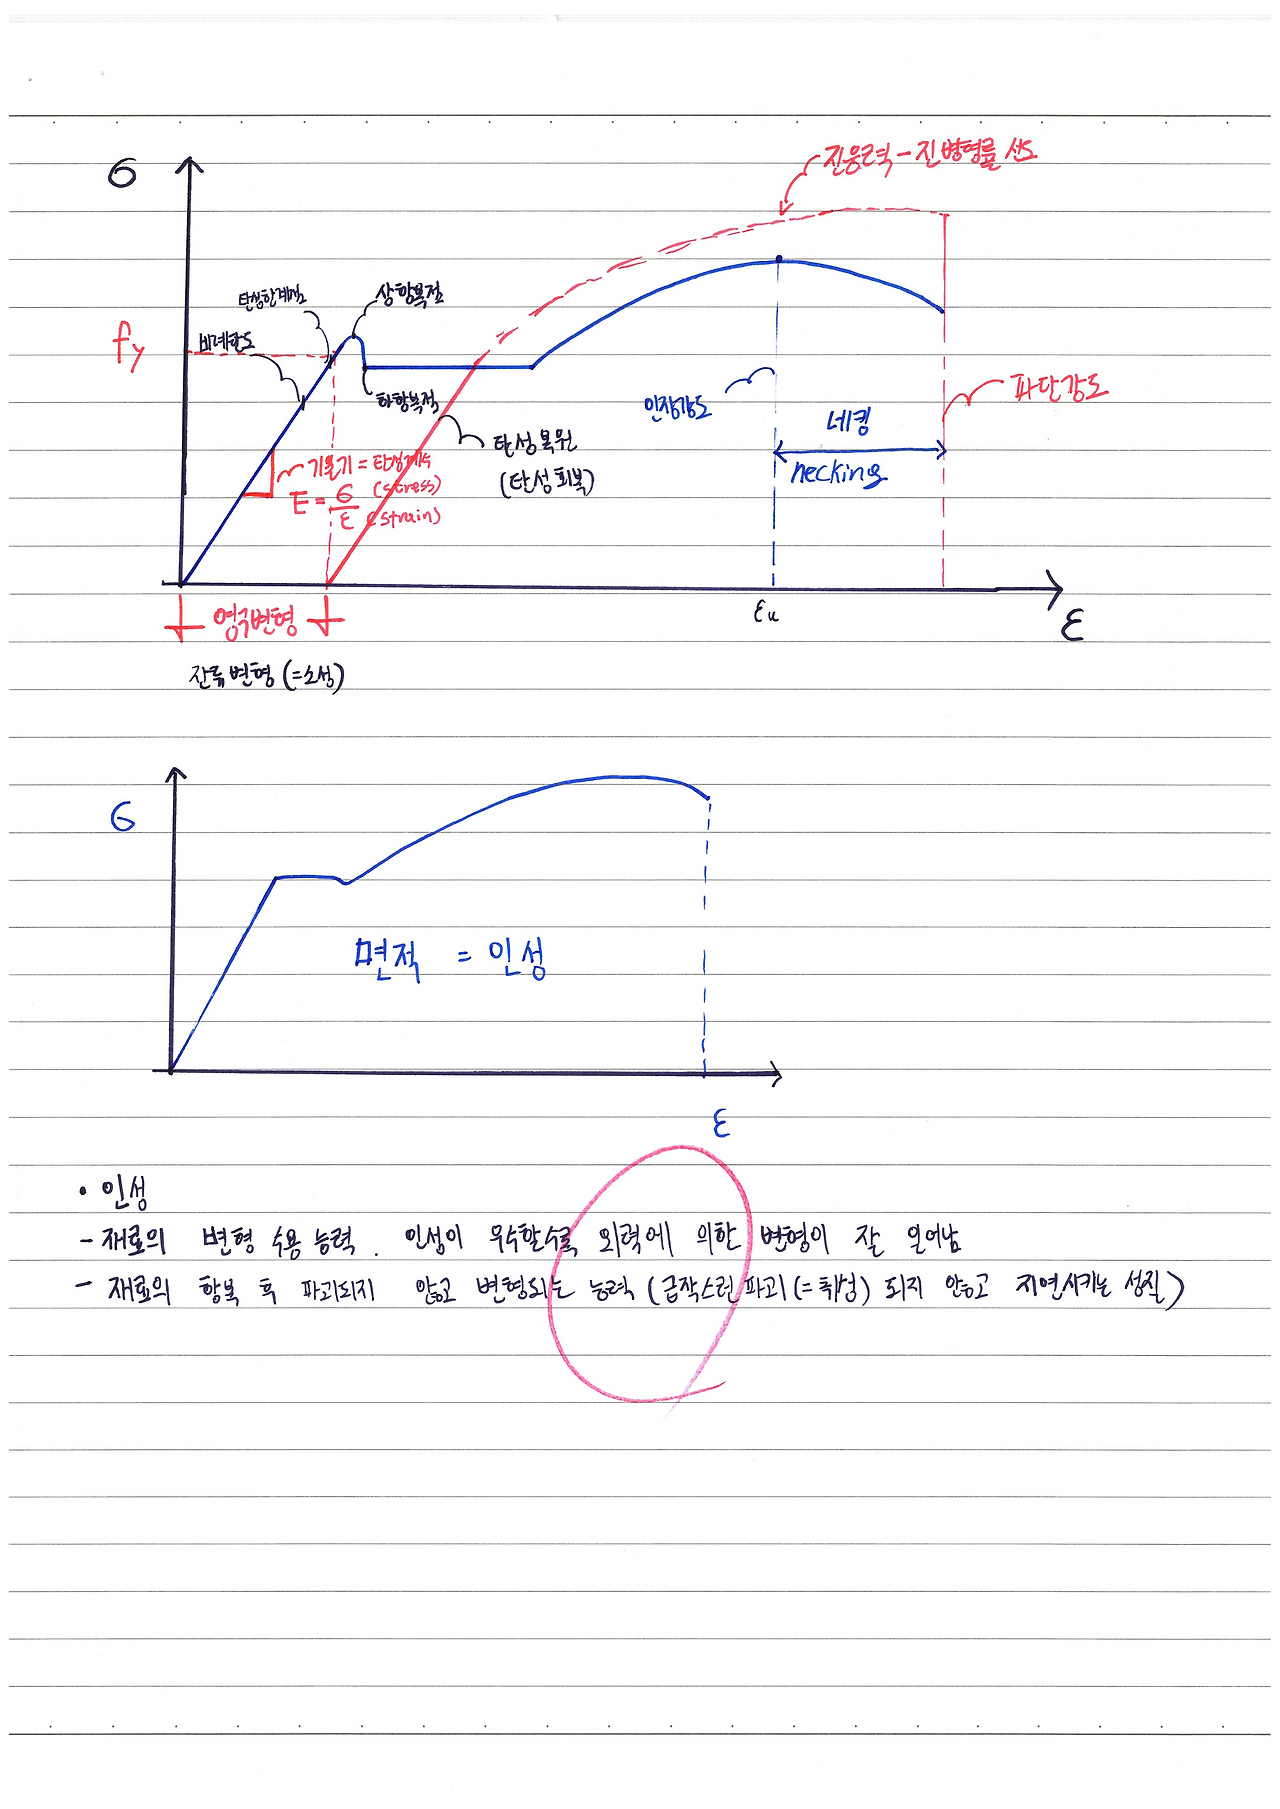 σ
진응력-진변형률 선도
탄성한계점
상항복점
fy
비례한도
하항복점
인장강도
파단강도
네킹
necking
탄성복원
(탄성회복)
기울기 = 탄성계수
E = σ (stress)
ε (strain)
영구변형
εu
ε
잔류변형 (=소성)
σ
면적 = 인성
ε
• 인성
- 재료의 변형 수용 능력. 인성이 우수할수록 외력에 의한 변형이 잘 일어남
- 재료의 항복 후 파괴되지 않고 변형되는 능력 (급작스런 파괴(=취성) 되지 않고 지연시키는 성질)